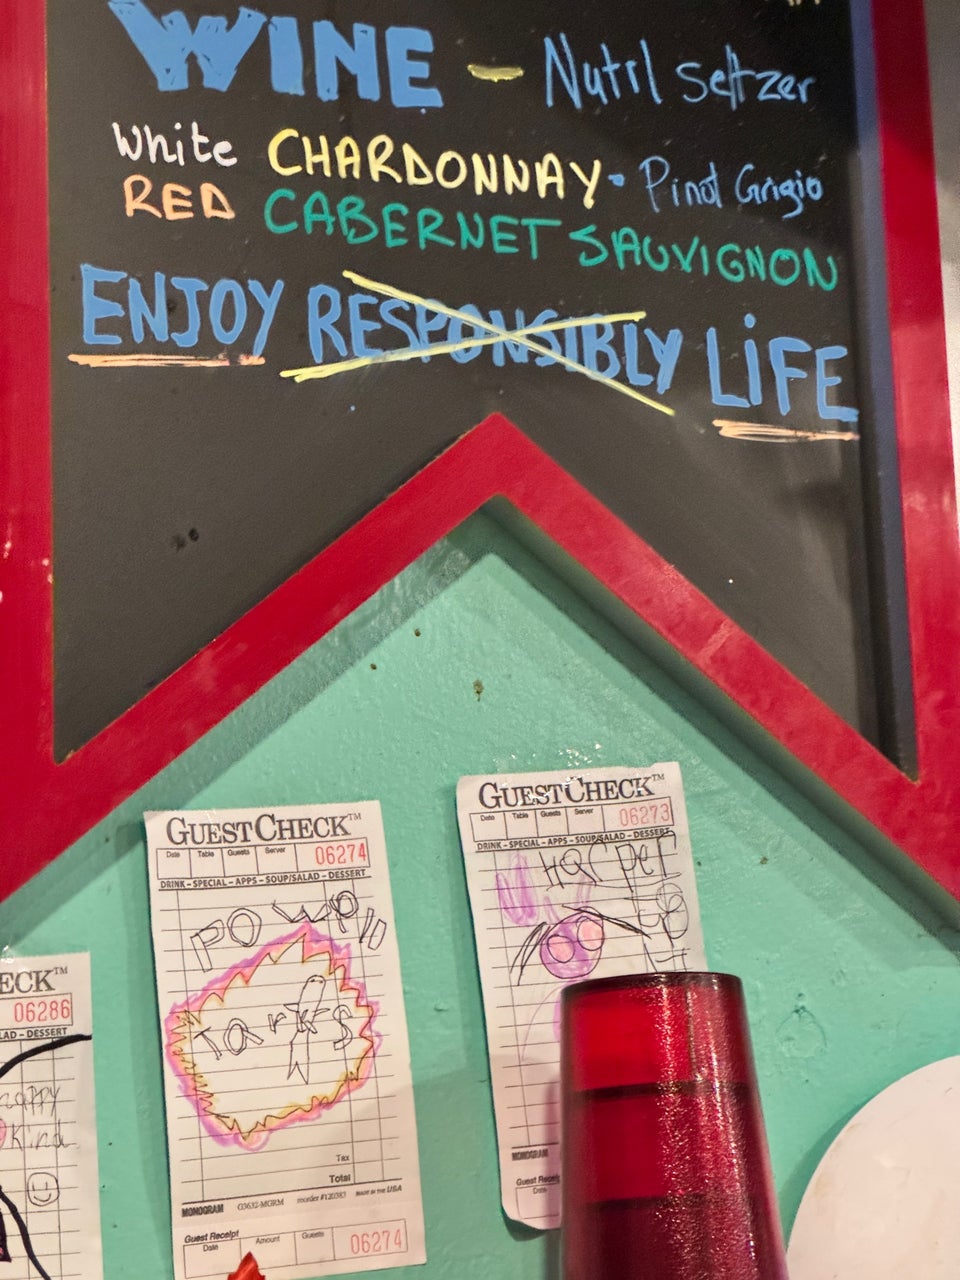 WINE - Nutrl Seltzer
White CHARDONNAY - Pinot Grigio
RED CABERNET SAUVIGNON
ENJOY RESPONSIBLY LiFE
GUESTCHECK™
Date Table Guests Server 06273
DRINK - SPECIAL - APPS - SOUP/SALAD - DESSERT
MONOGRAM
Guest Receipt
Date
GUESTCHECK™
Date Table Guests Server 06274
DRINK - SPECIAL - APPS - SOUP/SALAD - DESSERT
Tax
Total
MONOGRAM G3632-MGRM reorder #120383 MADE IN THE USA
Guest Receipt
Date Amount Guests 06274
ECK™
06286
LAD - DESSERT
Kind